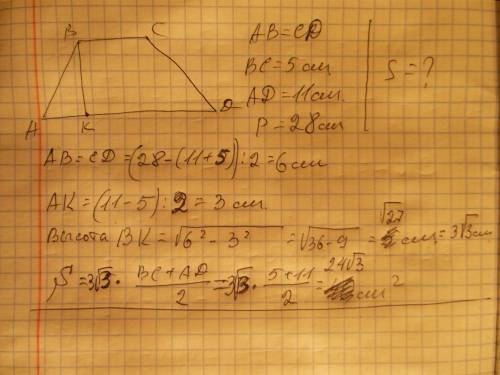 B C
A K D
AB = CD
BC = 5 см
AD = 11 см.
P = 28 см
S = ?
AB = CD = (28 - (11 + 5)) : 2 = 6 см
AK = (11 - 5) : 2 = 3 см.
Высота BK = √6² - 3² = √36 - 9 = √27 см = 3√3 см
S = 3√3 · BC + AD / 2 = 3√3 · 5 + 11 / 2 = 24√3 см²